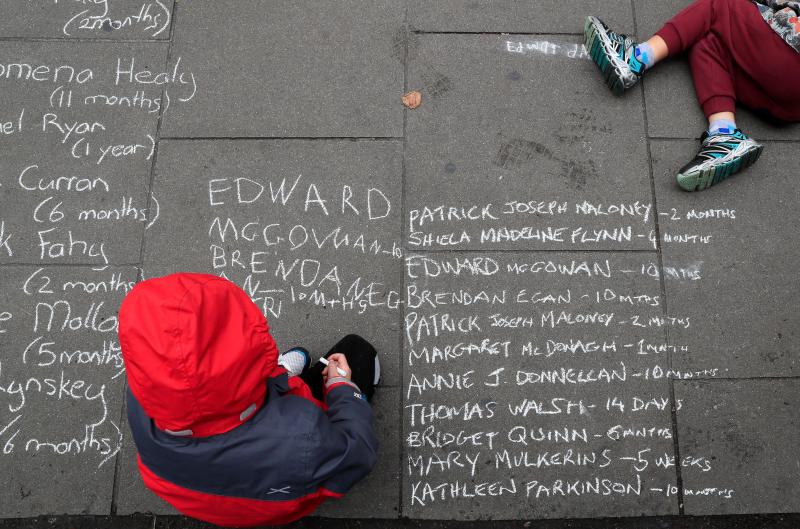 (2 months)
omena Healy
(11 months)
el Ryan
(1 year)
Curran
(6 months)
Fahy
(2 months)
Mollo
(5 months
ynskey
6 months)
EDWARD
MCGOVMAN-10
BRENDAN EG
10MTHS
EDWI
PATRICK JOSEPH MALONEY - 2 MONTHS
SHIELA MADELINE FLYNN - MONTHS
EDWARD MCGOWAN - 10 MTHS
BRENDAN EGAN - 10 MTHS
PATRICK JOSEPH MALONEY - 2 MTHS
MARGARET MCDONAGH - 1 MNTH
ANNIE J. DONNELLAN - 10 MTHS
THOMAS WALSH - 14 DAYS
BRIDGET QUINN - 6 MNTHS
MARY MULKERINS - 5 WEEKS
KATHLEEN PARKINSON - 10 MNTHS